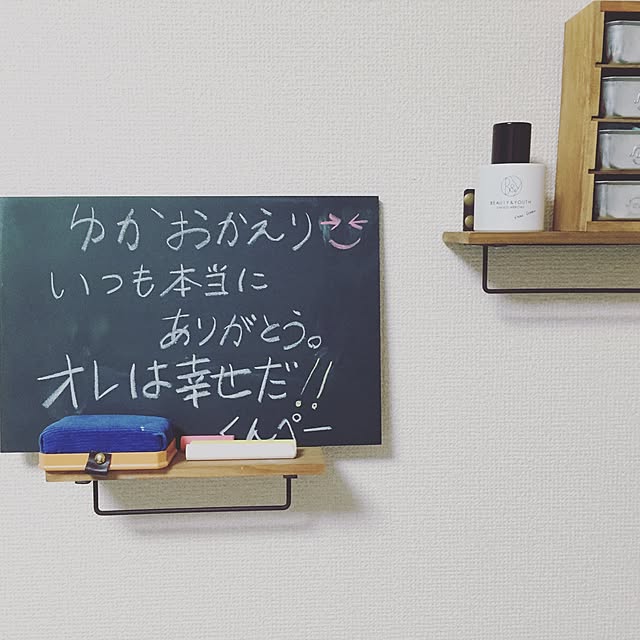 ゆかおかえり
いつも本当に
ありがとう。
オレは幸せだ!!
くんぺー
BEAUTY&YOUTH